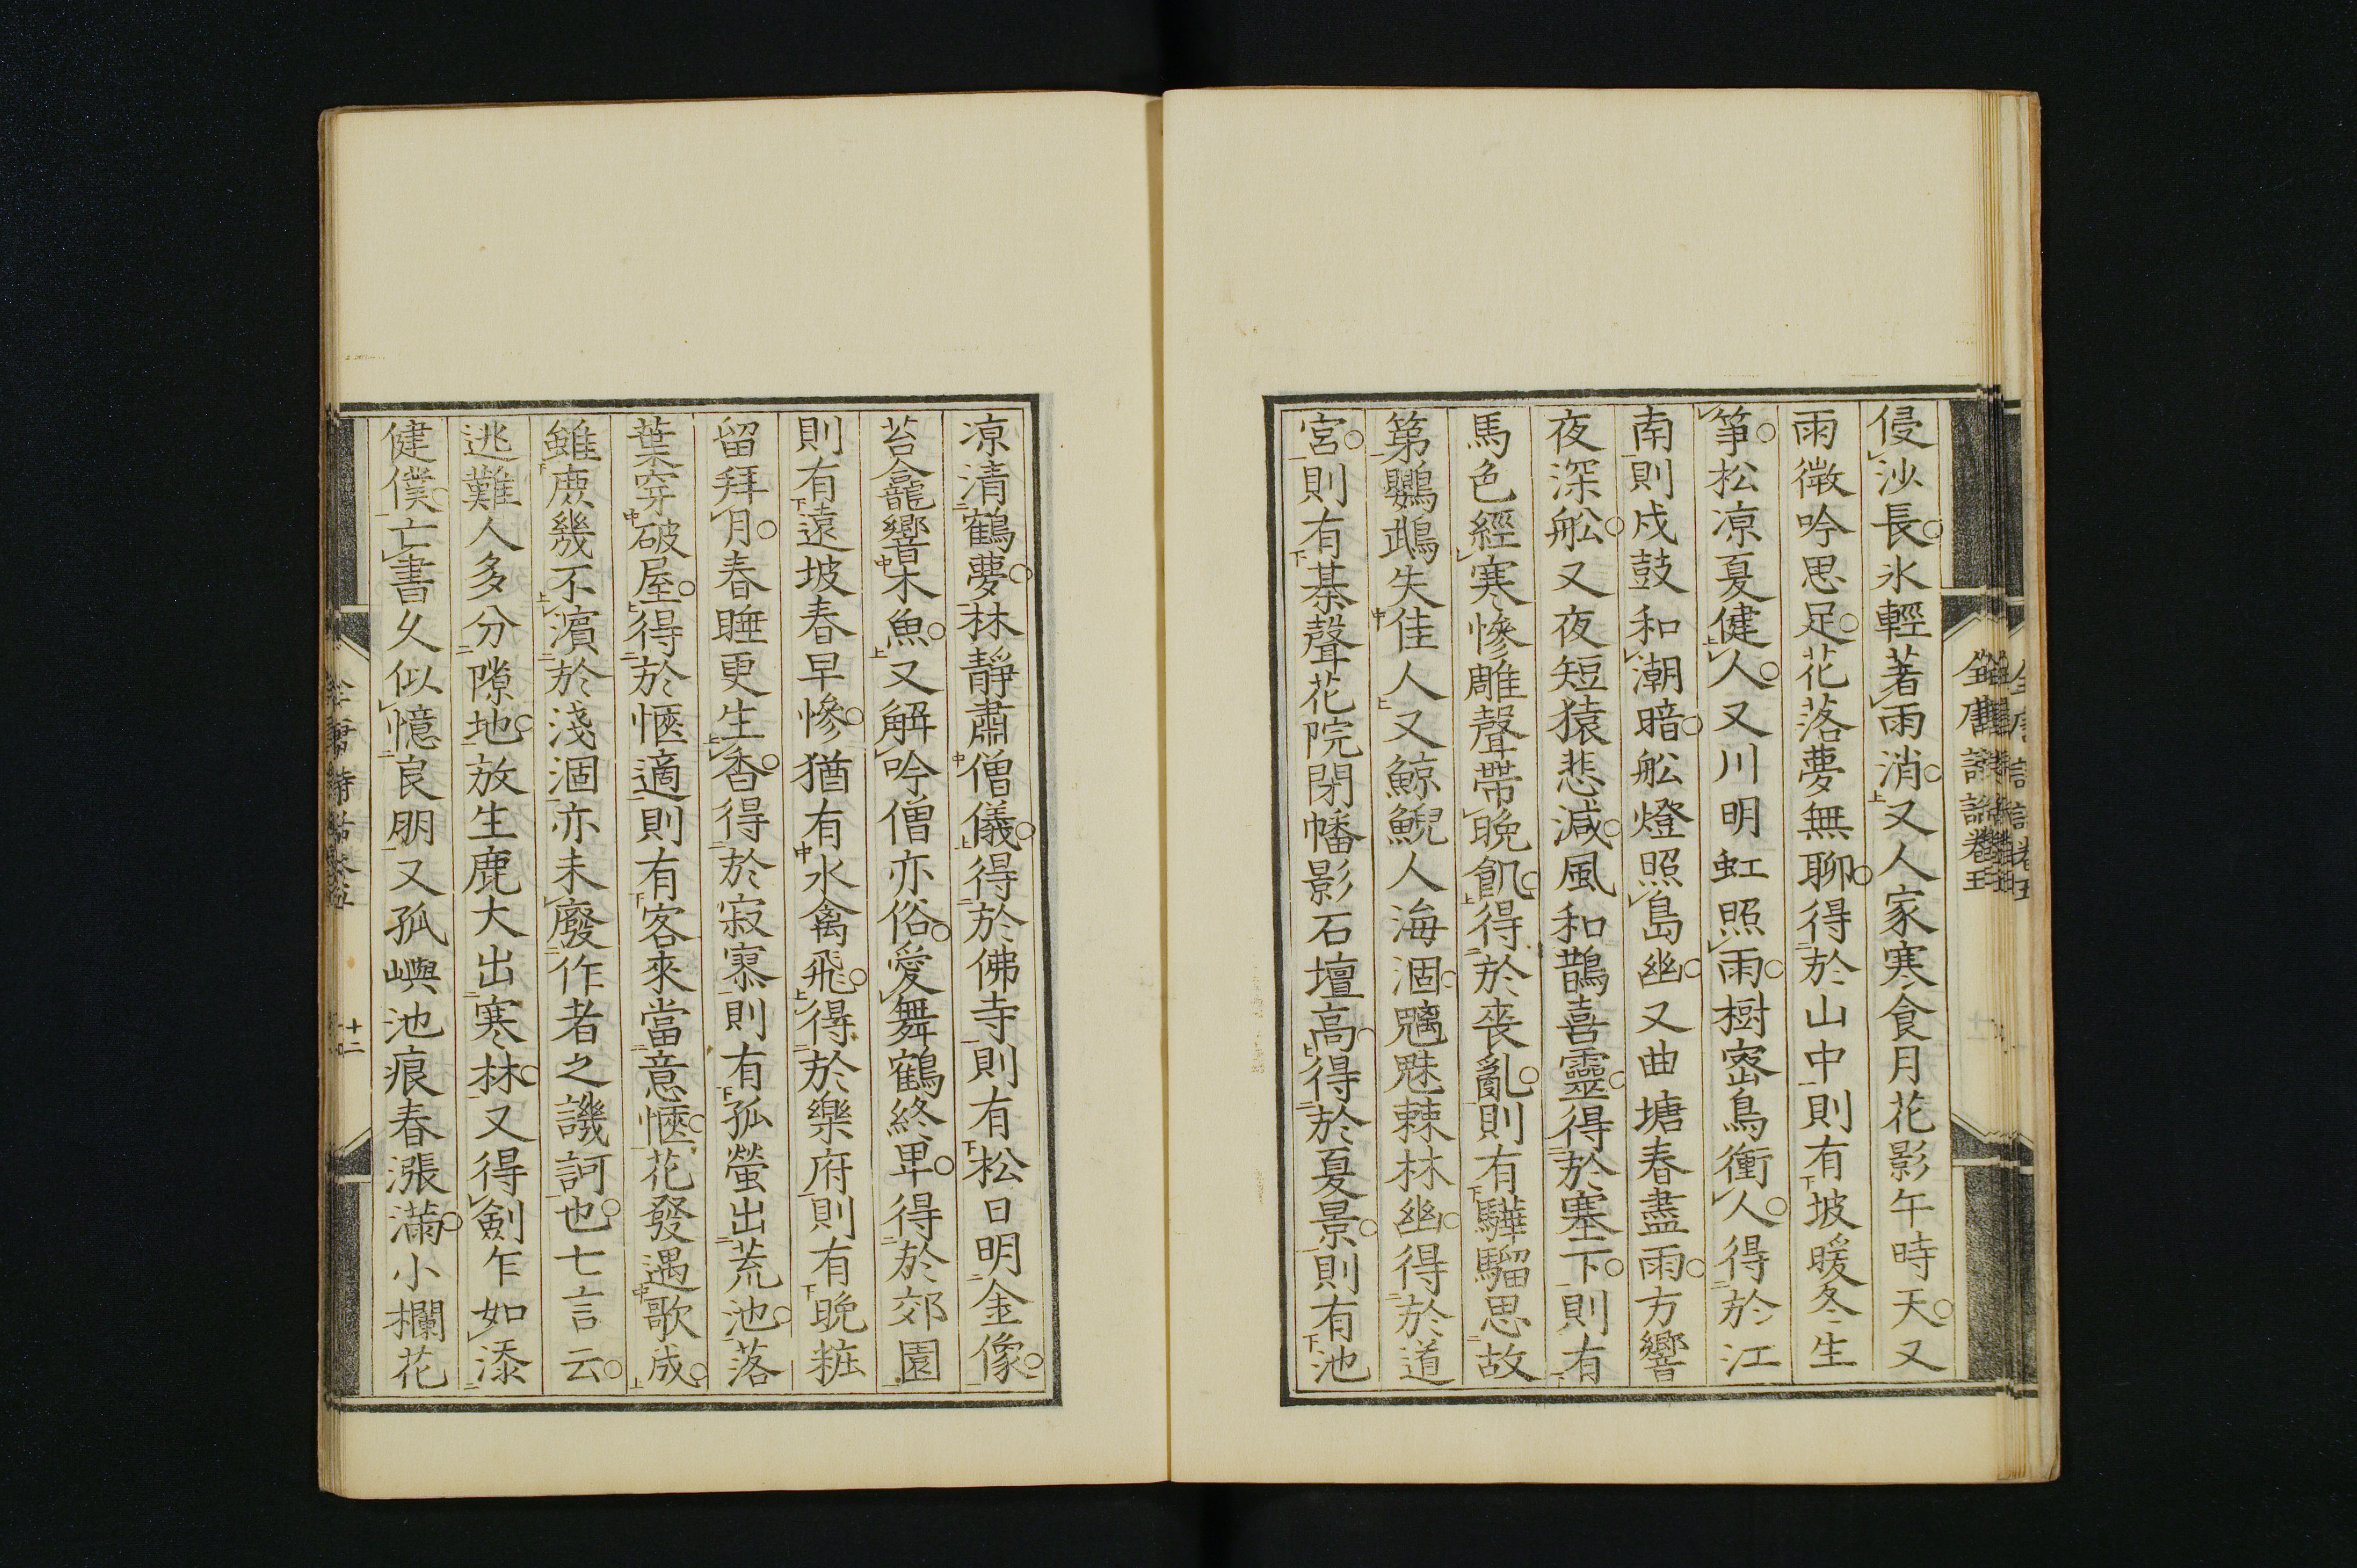 侵沙長氷輕著雨消又人家寒食月花影午時天又
雨微吟思足花落夢無聊得於山中則有坡暖冬生
笋松凉夏健人又川明虹照雨樹密鳥衝人得於江
南則戍鼓和潮暗舩燈照島幽又曲塘春盡雨方響
夜深舩又夜短猿悲減風和鵲喜靈得於塞下則有
馬色經寒慘雕聲帶晚飢得於喪亂則有驊騮思故
第鸚鵡失佳人又鯨鯢人海涸魑魅棘林幽得於道
宮則有棊聲花院閉幡影石壇高得於夏景則有池
凉清鶴夢林靜肅僧儀得於佛寺則有松日明金像
苔龕響木魚又解吟僧亦俗愛舞鶴終卑得於郊園
則有遠坡春早慘猶有水禽飛得於樂府則有晚粧
留拜月春睡更生香得於寂寞則有孤螢出荒池落
葉穿破屋得於愜適則有客來當意愜花發遇歌成
雖庶幾不濱於淺涸亦未廢作者之譏訶也七言云
逃難人多分隙地放生鹿大出寒林又得劍乍如添
健僕亡書久似憶良朋又孤嶼池痕春漲滿小欄花
全唐詩話卷五
全唐詩話卷五 十二